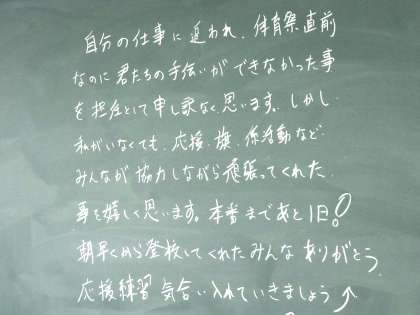 自分の仕事に追われ、体育祭直前
なのに君たちの手伝いができなかった事
を担任として申し訳なく思います。しかし
私がいなくても、応援、旗、係活動など
みんなが協力しながら頑張ってくれた
事を嬉しく思います。本番まであと1日。!
朝早くから登校してくれたみんなありがとう
応援練習気合い入れていきましょう↗